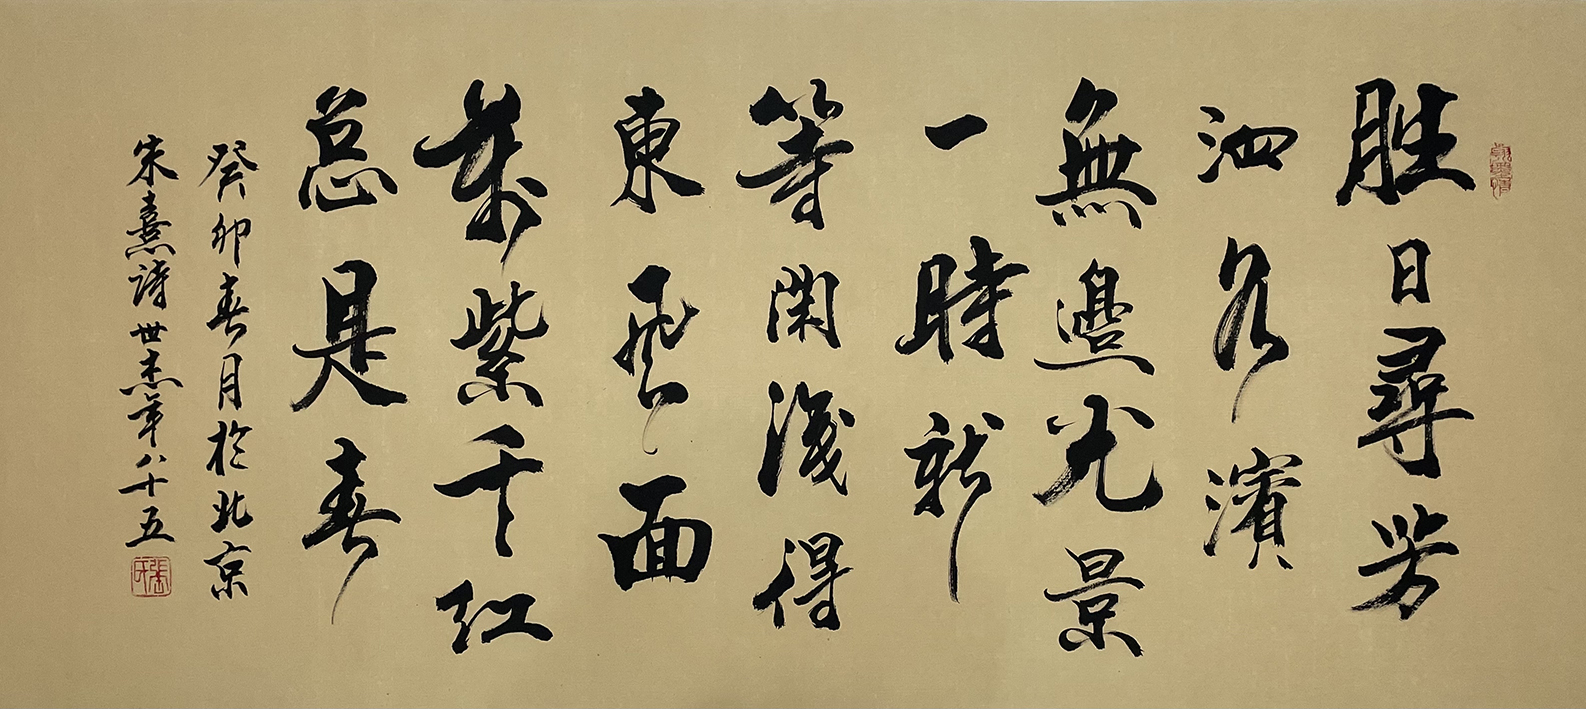 胜日尋芳
泗水濱
無邊光景
一時新
等閑識得
東風面
萬紫千紅
总是春
癸卯春月於北京
朱熹詩世杰年八十五